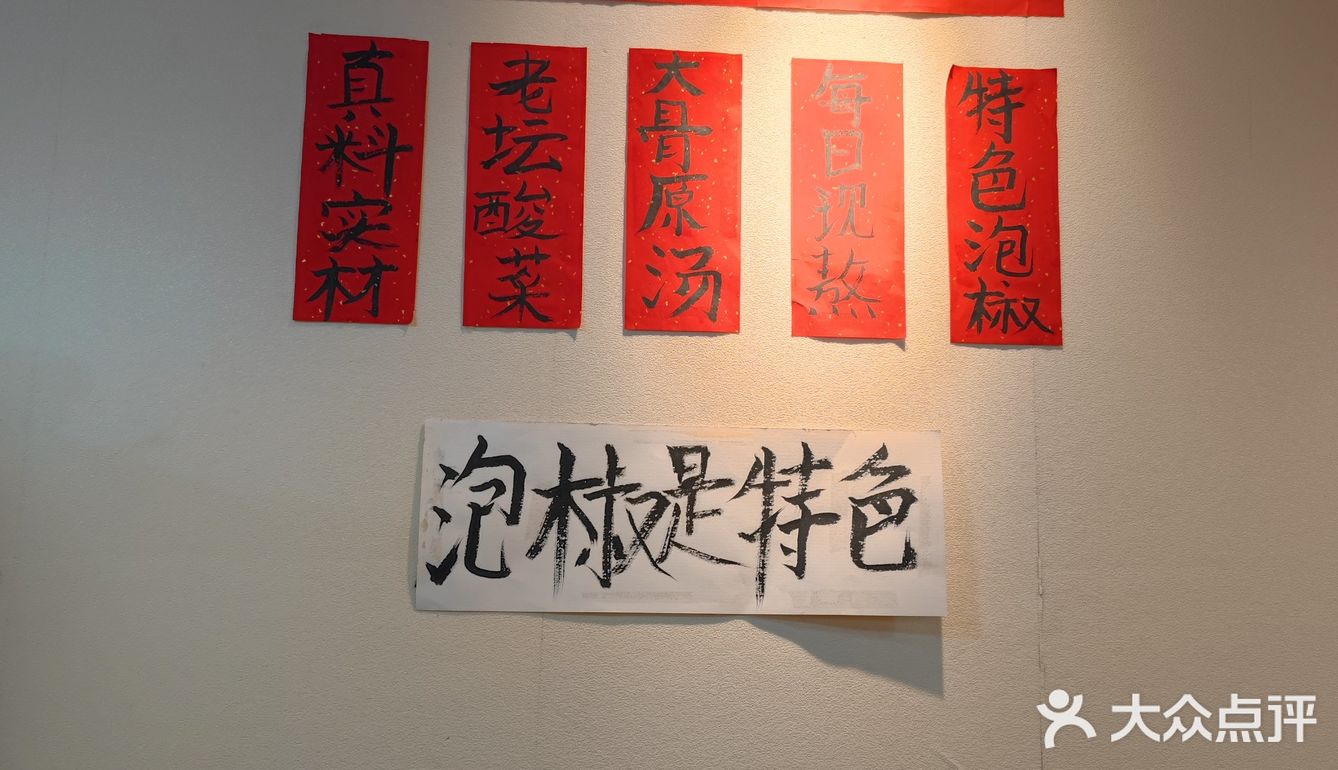 真料实材
老坛酸菜
大骨原汤
每日现熬
特色泡椒
泡椒是特色
大众点评